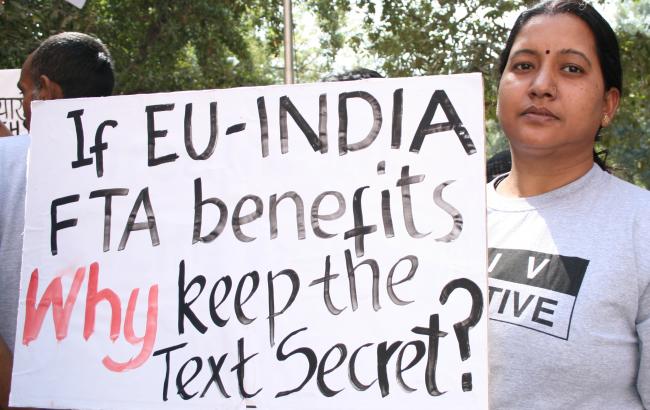 If EU-INDIA
FTA benefits
Why keep the
Text Secret?
IV
TIVE